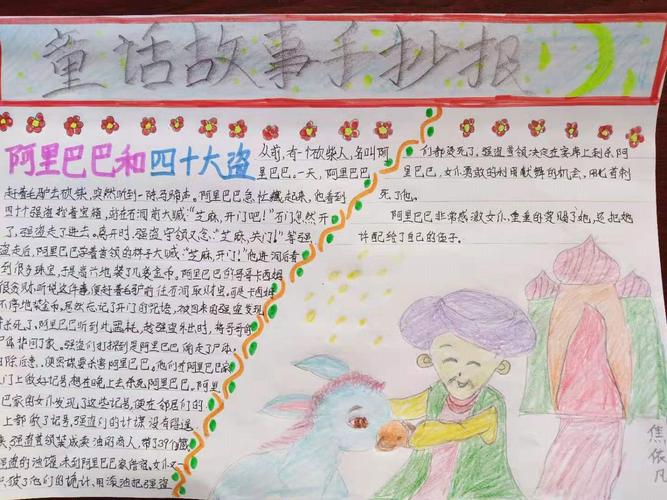 童话故事手抄报
阿里巴巴和四十大盗
从前,有一个砍柴人,名叫阿
里巴巴。一天,阿里巴巴
赶着毛驴去砍柴,突然听到一阵马蹄声。阿里巴巴急忙藏起来,他看到
四十个强盗抬着宝箱,站在石洞前大喊:“芝麻,开门吧!”石门忽然开
了,强盗走了进去。离开时,强盗守领又念:“芝麻,关门!”等强
盗走后,阿里巴巴学着首领的样子大喊:“芝麻,开门吧!”他进洞后看
到很多珠宝,于是高兴地装了几袋金币。阿里巴巴的哥哥卡西姆
很贪财,听说这件事,便赶着毛驴前往石洞取财宝。可是卡西姆
不停地装金币,居然忘记了开门的咒语,被回来的强盗发现
杀死了。阿里巴巴听到此噩耗,趁强盗外出时,将哥哥的
尸体背回了家。强盗们打探到是阿里巴巴偷走了尸体,
除后患,便密谋要杀害阿里巴巴。他们在阿里巴巴家
门上做好记号,想在晚上去杀死阿里巴巴。阿里
巴家的女仆发现了这些记号,便在邻居们的
上都做了记号,强盗们的计谋没有得逞
来,强盗首领装成卖油的商人,带了37个藏
强盗的油馕,来到阿里巴家借宿。女仆又一
识破了他们的诡计,用滚油把强盗
们都烫死了。强盗首领决定在宴席上刺杀阿
里巴巴,女仆勇敢的利用献舞的机会,用匕首刺
死了他。
阿里巴巴非常感激女仆,重重的赏赐了她,还把她
许配给了自己的侄子。
焦依凡